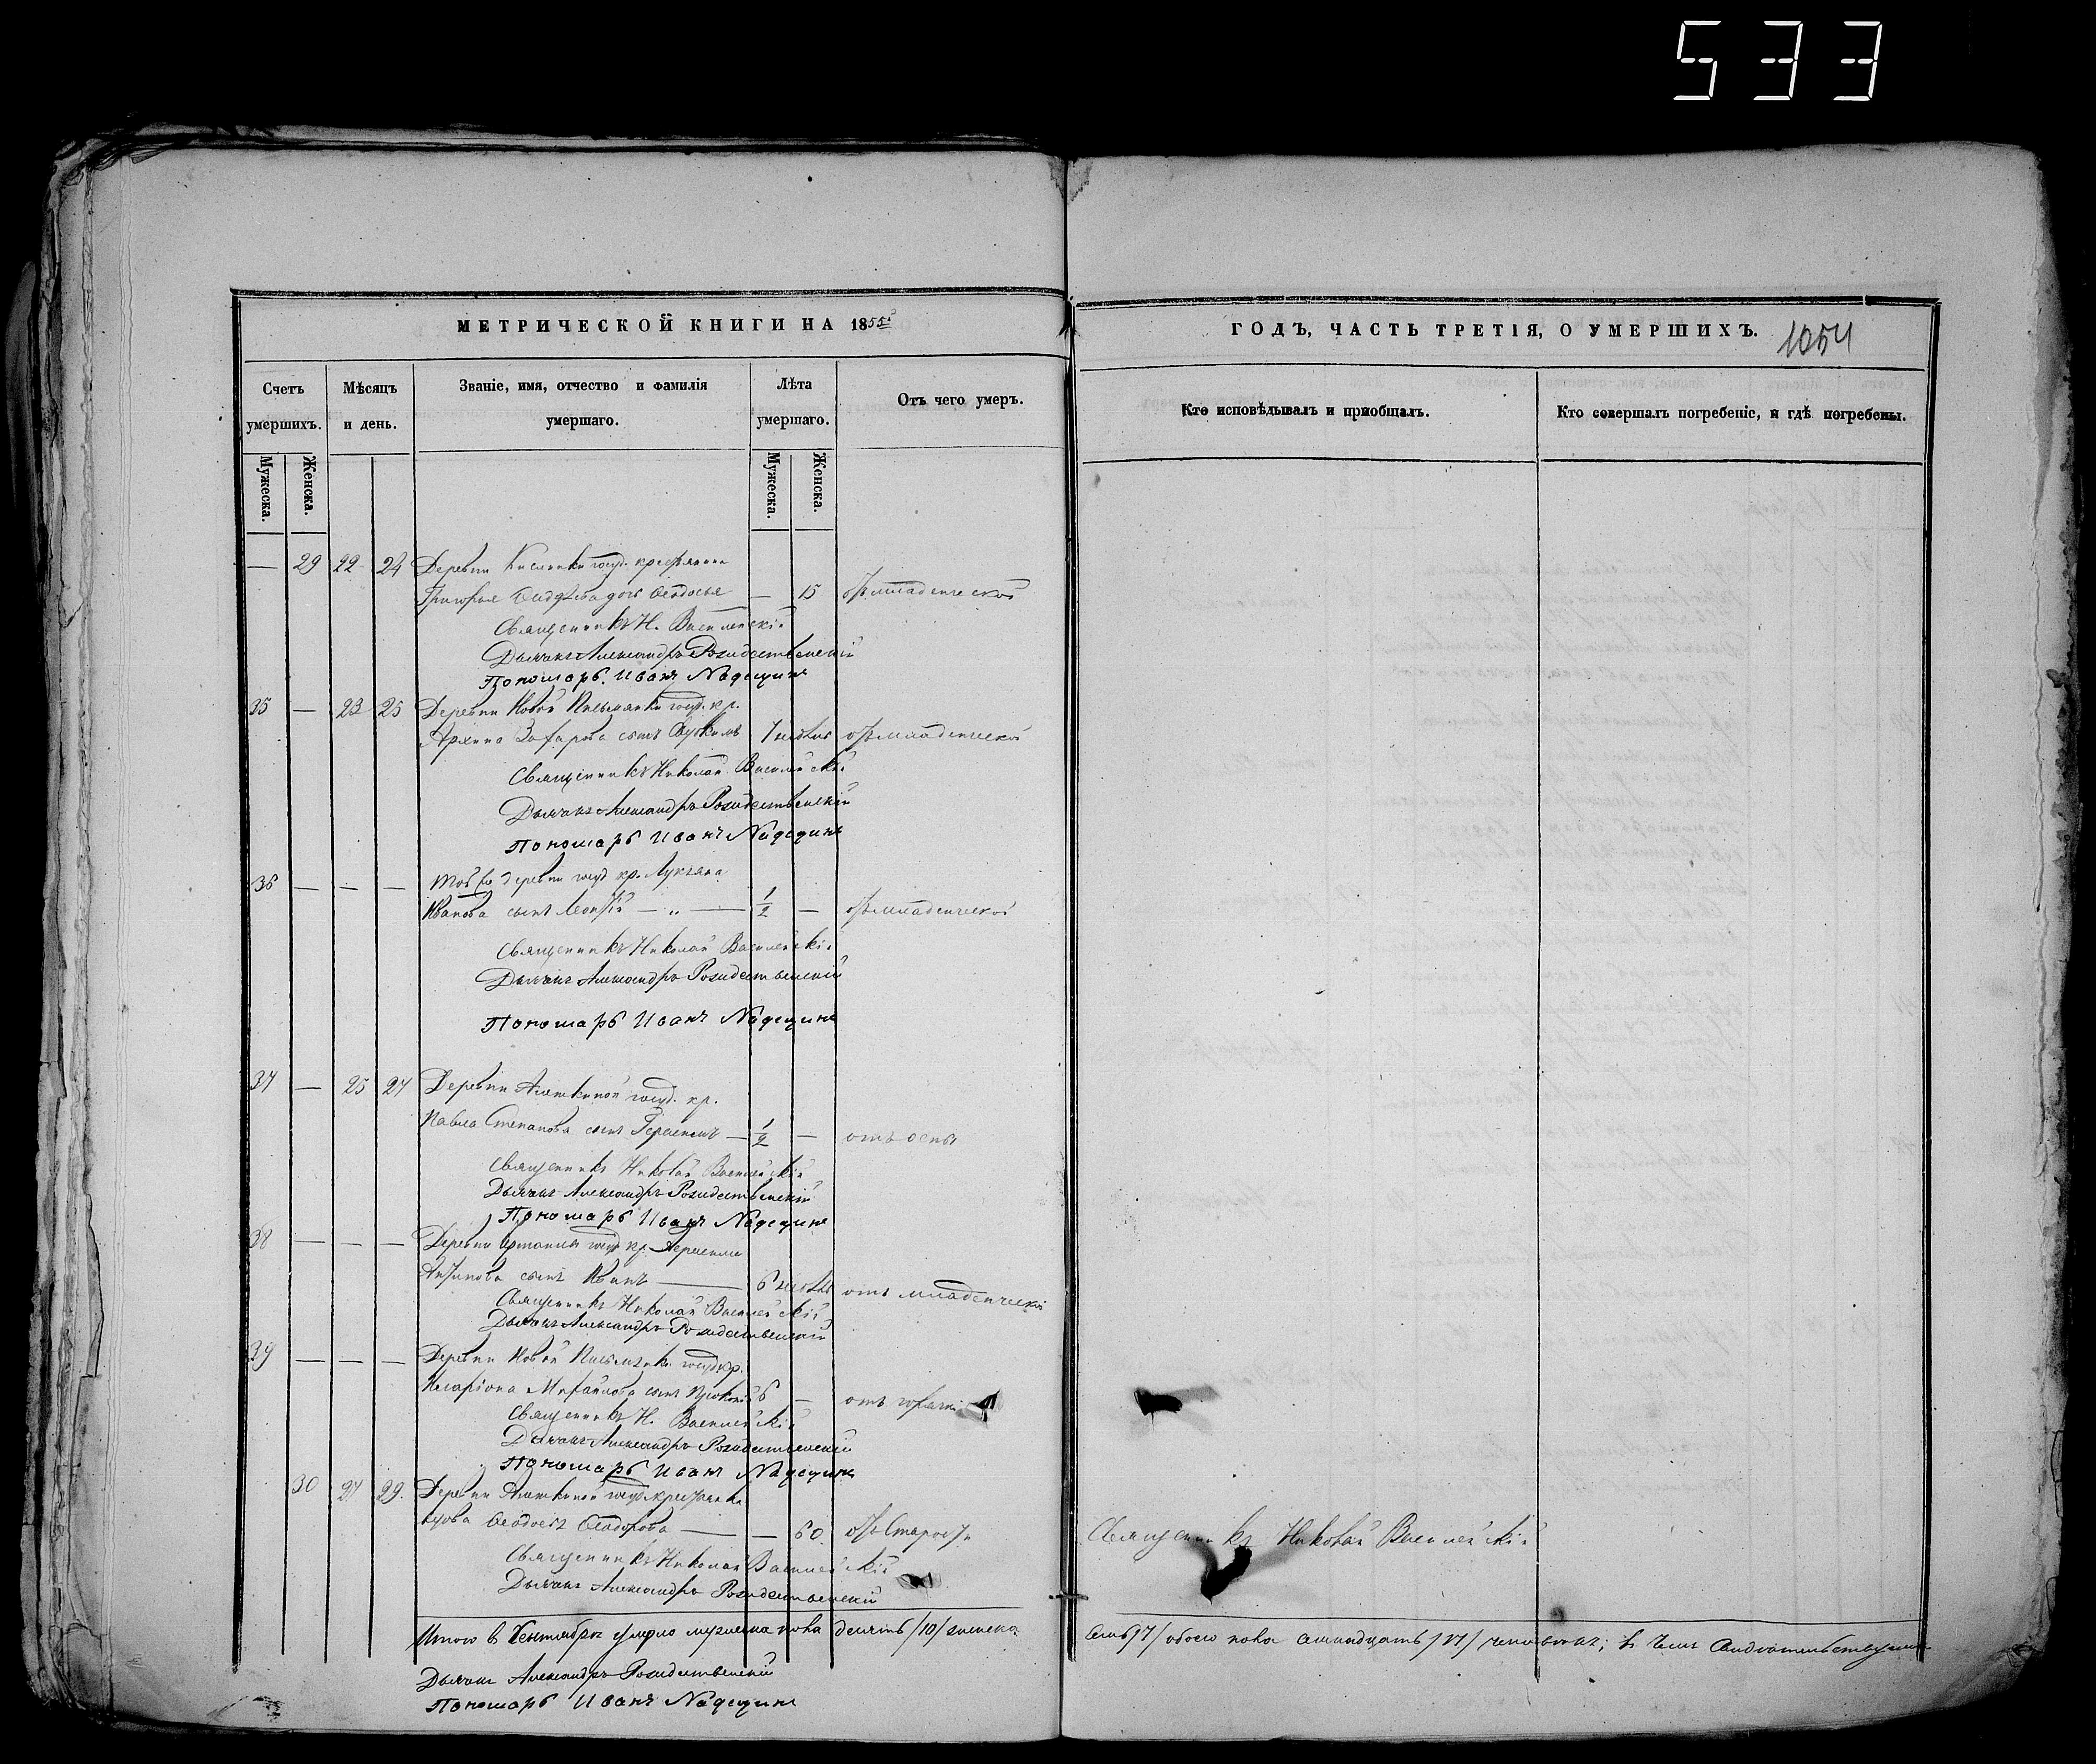 533
МЕТРИЧЕСКОЙ КНИГИ НА 1855й
ГОДЪ, ЧАСТЬ ТРЕТІЯ, О УМЕРШИХЪ.
1054
Счетъ умершихъ.
Мѣсяцъ и день.
Званіе, имя, отчество и фамилія умершаго.
Лѣта умершаго.
Отъ чего умеръ.
Кто исповѣдывалъ и пріобщалъ.
Кто совершалъ погребеніе, и гдѣ погребены.
Мужеска. Женска. Мужеска. Женска.
— 29 22 24 Деревни государ. крестьянина
Григорья дочь Ѳеодосья — 15 отъ младенческой
Священникъ Н.
Дьячекъ Александръ Рождественскій
Пономарь Иванъ Надеждинъ
35 — 23 25 Деревни Новой Письмянки госуд. кр.
Архипа Захарова сынъ 7 недѣль отъ младенческой
Священникъ Николай
Дьячекъ Александръ Рождественскій
Пономарь Иванъ Надеждинъ
36 — — — Той же деревни госуд. кр. Лукьяна
Иванова сынъ Леонтій — „ — 1/2 — отъ младенческой
Священникъ Николай
Дьячекъ Александръ Рождественскій
Пономарь Иванъ Надеждинъ
37 — 25 27 Деревни госуд. кр.
Павла Степанова сынъ — 1/2 — отъ оспы
Священникъ Николай
Дьячекъ Александръ Рождественскій
Пономарь Иванъ Надеждинъ
38 — — — Деревни госуд. кр. Герасима
Антипова сынъ Иванъ — 6 недѣль отъ младенческой
Священникъ Николай
Дьячекъ Александръ Рождественскій
39 — — — Деревни Новой Письмянки госуд. кр.
Иларіона Михайлова сынъ Прокопій 6 — отъ горячки
Священникъ Н.
Дьячекъ Александръ Рождественскій
Пономарь Иванъ Надеждинъ
30 27 29. Деревни госуд. крестьянка
вдова Ѳеодосья Ѳеодорова — — 60 отъ старости
Священникъ Николай
Священникъ Николай
Дьячекъ Александръ Рождественскій
Итого в Сентябрѣ умерло мужеска пола десять /10/ женска
семь /7/ обоего пола семнадцать /17/ человѣкъ; в чемъ свидѣтельствуемъ
Дьячекъ Александръ Рождественскій
Пономарь Иванъ Надеждинъ